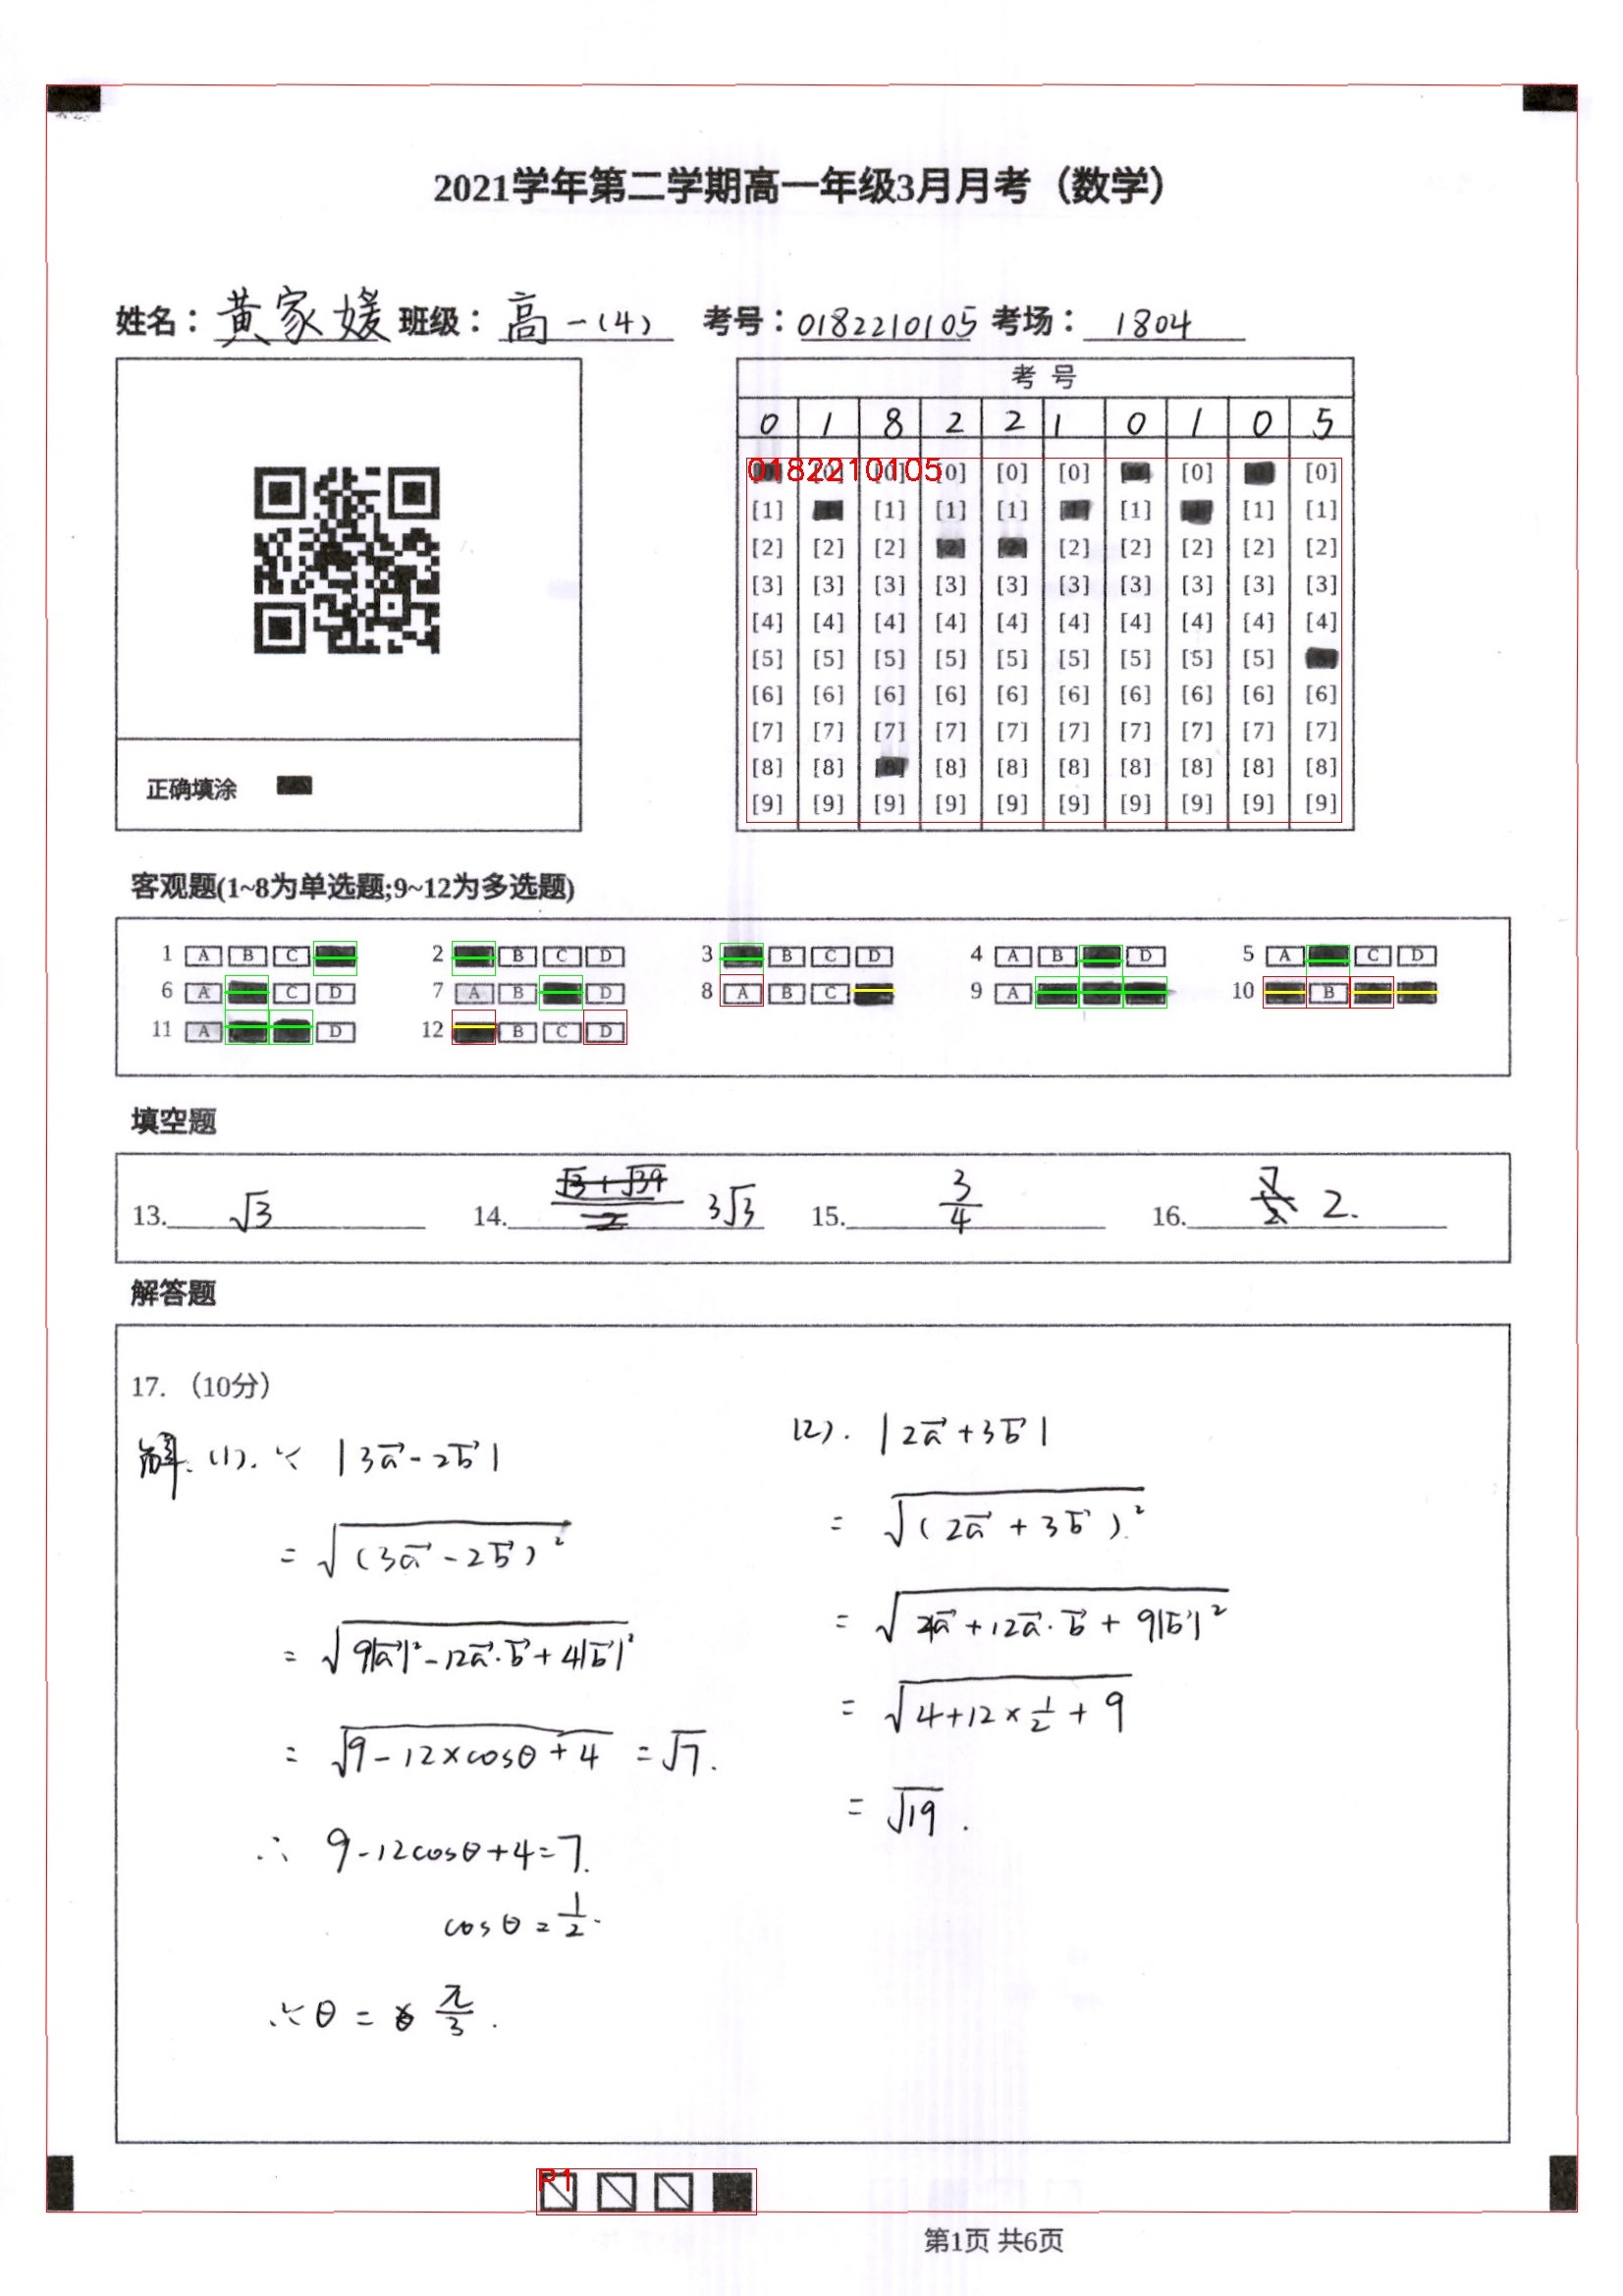 2021学年第二学期高一年级3月月考（数学）
姓名：黄家媛 班级：高一(4) 考号：0182210105 考场：1804
考 号
0 1 8 2 2 1 0 1 0 5
0182210105
[0] [0] [0] [0] [0] [0]
[1] [1] [1] [1] [1] [1] [1]
[2] [2] [2] [2] [2] [2] [2] [2]
[3] [3] [3] [3] [3] [3] [3] [3] [3] [3]
[4] [4] [4] [4] [4] [4] [4] [4] [4] [4]
[5] [5] [5] [5] [5] [5] [5] [5] [5]
[6] [6] [6] [6] [6] [6] [6] [6] [6] [6]
[7] [7] [7] [7] [7] [7] [7] [7] [7] [7]
[8] [8] [8] [8] [8] [8] [8] [8] [8] [8]
[9] [9] [9] [9] [9] [9] [9] [9] [9] [9]
正确填涂
客观题(1~8为单选题;9~12为多选题)
1 A B C 2 B C D 3 B C D 4 A B D 5 A C D
6 A C D 7 A B D 8 A B C 9 A 10 B
11 A D 12 B C D
填空题
13. √3 14. 3√3 15. 3/4 16. 2.
解答题
17. （10分）
解: (1). ∵ |3a⃗ - 2b⃗|
= √(3a⃗ - 2b⃗)²
= √9|a⃗|² - 12a⃗·b⃗ + 4|b⃗|²
= √9 - 12×cosθ + 4 = √7.
∴ 9 - 12cosθ + 4 = 7.
cosθ = 1/2.
∵ θ = π/3.
(2). |2a⃗ + 3b⃗|
= √(2a⃗ + 3b⃗)²
= √4a⃗ + 12a⃗·b⃗ + 9|b⃗|²
= √4 + 12×1/2 + 9
= √19.
P1
第1页 共6页